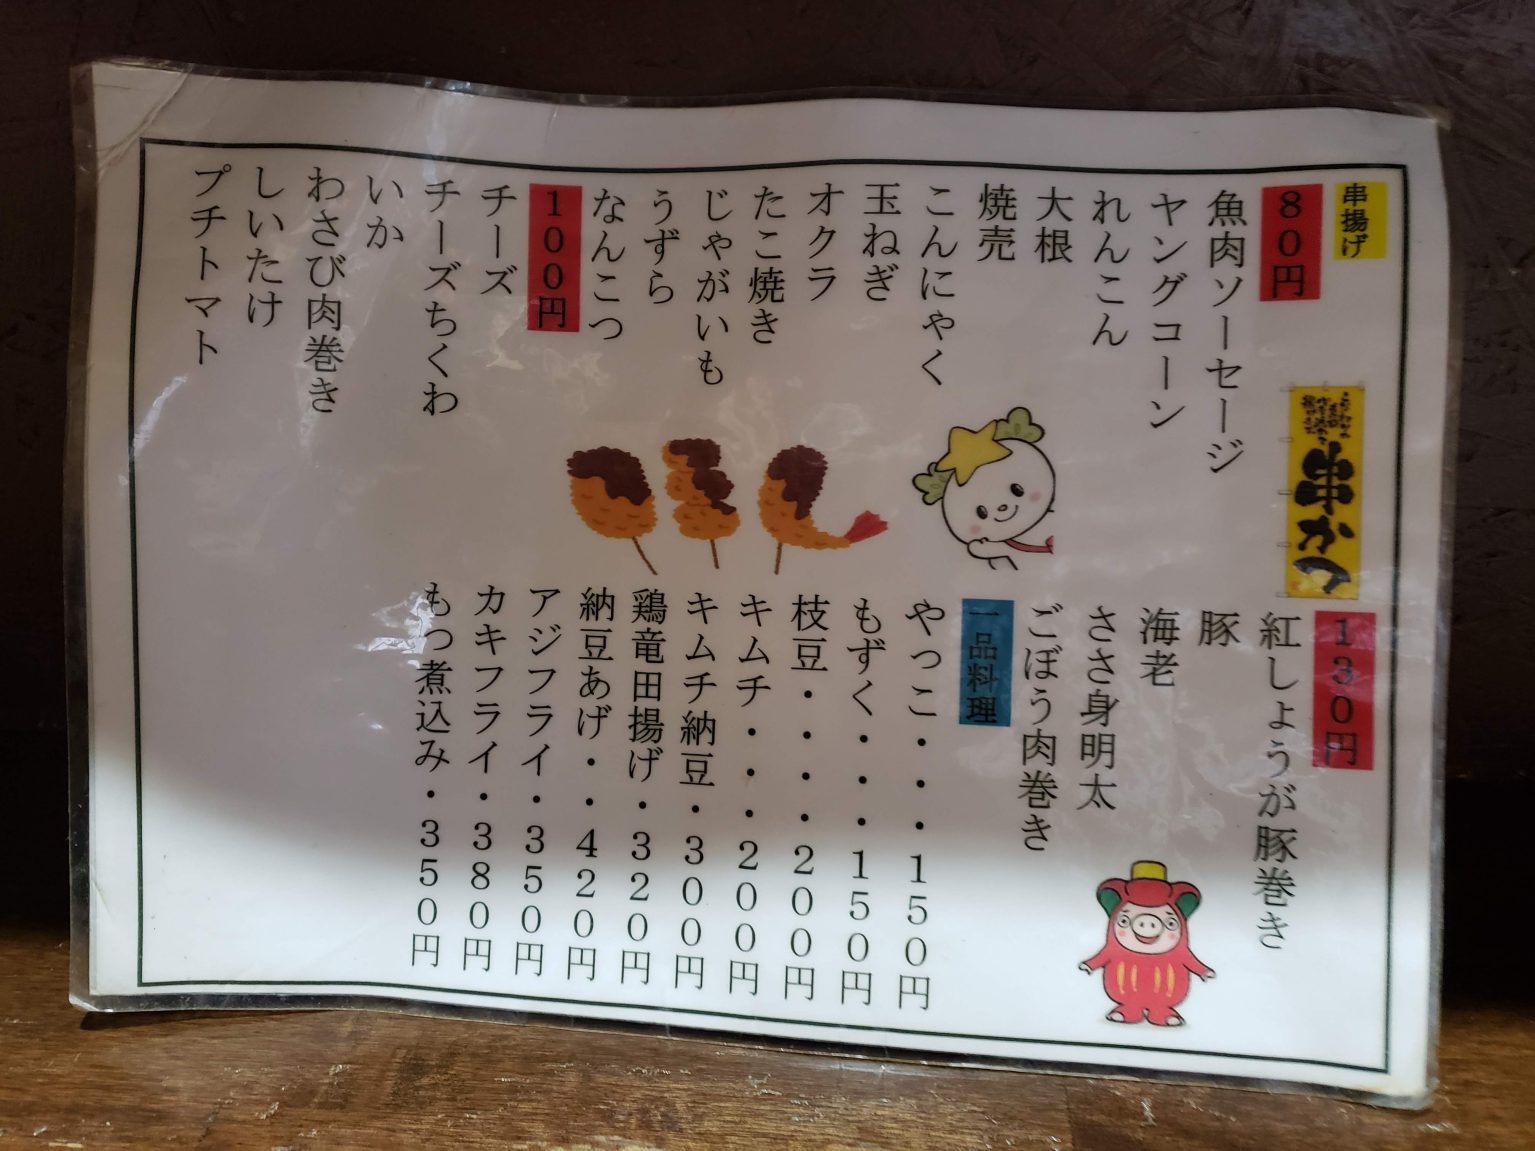 串揚げ
80円
魚肉ソーセージ
ヤングコーン
れんこん
大根
焼売
こんにゃく
玉ねぎ
オクラ
たこ焼き
じゃがいも
うずら
なんこつ
100円
チーズ
チーズちくわ
いか
わさび肉巻き
しいたけ
プチトマト
串かつ
130円
紅しょうが豚巻き
豚
海老
ささ身明太
ごぼう肉巻き
一品料理
やっこ・・・150円
もずく・・・150円
枝豆・・・・200円
キムチ・・・200円
キムチ納豆・300円
鶏竜田揚げ・320円
納豆あげ・・420円
アジフライ・350円
カキフライ・380円
もつ煮込み・350円